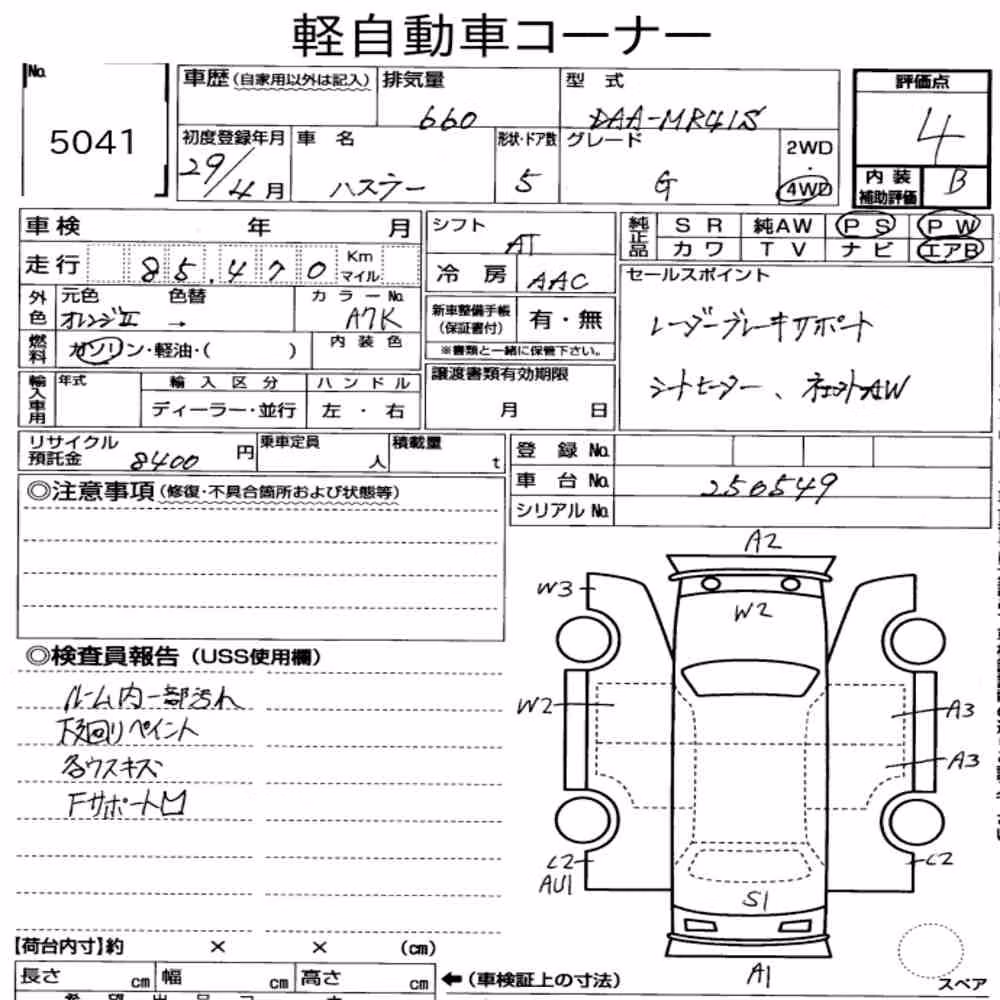 軽自動車コーナー
No.
5041
車歴(自家用以外は記入)
排気量
660
型式
DAA-MR41S
評価点
4
初度登録年月
29/4月
車名
ハスラー
形状・ドア数
5
グレード
G
2WD
・
4WD
内装
補助評価
B
車検 年 月
走行 85,470 Km
マイル
外色
元色 色替
オレンジⅡ →
カラーNo.
A7K
燃料
ガソリン・軽油・( )
内装色
輸入車用
年式
輸入区分
ディーラー・並行
ハンドル
左・右
シフト
AT
冷房
AAC
新車整備手帳
(保証書付)
有・無
※書類と一緒に保管下さい。
譲渡書類有効期限
月 日
純正品
SR 純AW PS PW
カワ TV ナビ エアB
セールスポイント
レーダーブレーキサポート
シートヒーター、社外AW
リサイクル
預託金 8400 円
乗車定員
人
積載量
t
登録No.
車台No. 250549
シリアルNo.
◎注意事項(修復・不具合箇所および状態等)
◎検査員報告(USS使用欄)
ルーム内一部汚れ
下廻りペイント
各ウスキズ
Fサポート凹
A2
W3
W2
W2
A3
A3
C2
AU1
C2
S1
A1
スペア
【荷台内寸】約 × × (cm)
長さ cm 幅 cm 高さ cm ←(車検証上の寸法)